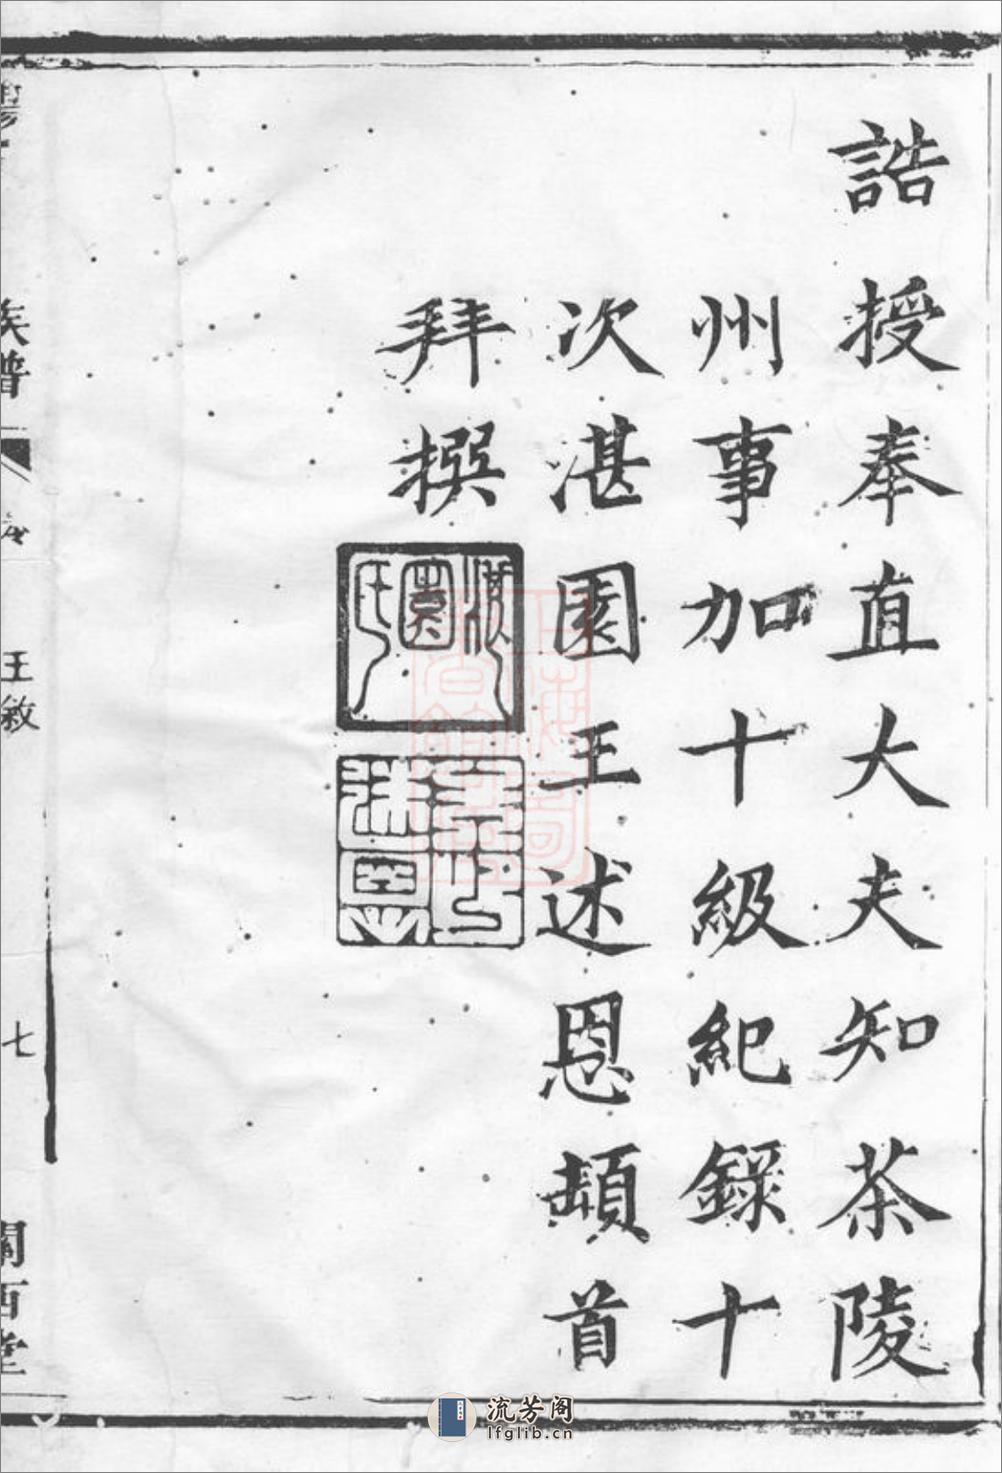 誥授奉直大夫知茶陵
州事加十級紀錄十
次湛園王述恩頓首
拜撰
王述恩
族譜
王敘
七
關西堂
流芳阁
lfglib.cn